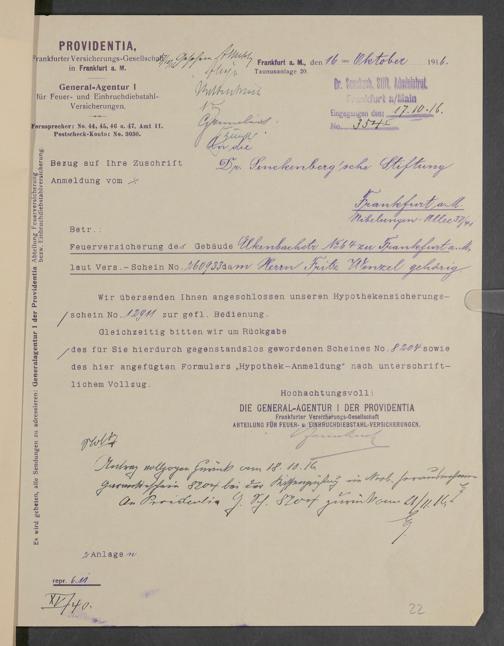 PROVIDENTIA,
Frankfurter Versicherungs-Gesellschaft
in Frankfurt a. M.
General-Agentur I
für Feuer- und Einbruchdiebstahl-
Versicherungen.
Fernsprecher: No. 44, 45, 46 u. 47, Amt II.
Postscheck-Konto: No. 3030.
Frankfurt a. M., den 16 Oktober 1916.
Taunusanlage 20.
Dr. Senckenb. Stift. Administrat.
Frankfurt a/Main
Eingegangen den 17.10.16.
No.
An die
Bezug auf Ihre Zuschrift
Dr. Senckenberg'sche Stiftung
Anmeldung vom
Frankfurt a.M.
Nibelungen Allee
Betr.:
Feuerversicherung der Gebäude No 64 zu Frankfurt a.M.
laut Vers.-Schein No. 260933 dem Herrn Fritz Wenzel gehörig
Wir übersenden Ihnen angeschlossen unseren Hypothekensicherungs-
schein No. 12911 zur gefl. Bedienung.
Gleichzeitig bitten wir um Rückgabe
des für Sie hierdurch gegenstandslos gewordenen Scheines No. 8204 sowie
des hier angefügten Formulars „Hypothek-Anmeldung" nach unterschrift-
lichem Vollzug.
Hochachtungsvoll!
DIE GENERAL-AGENTUR I DER PROVIDENTIA
Frankfurter Versicherungs-Gesellschaft
ABTEILUNG FÜR FEUER- u. EINBRUCHDIEBSTAHL-VERSICHERUNGEN.
Antrag vollzogen zurück am 18.10.16
8204 bei der
An Providentia 8204 zurück am 21/11.16.
Anlagen
repr. 6.11
XV/40.
22
Es wird gebeten, alle Sendungen zu adressieren: Generalagentur I der Providentia Abteilung Feuerversicherung
bezw. Einbruchdiebstahlversicherung